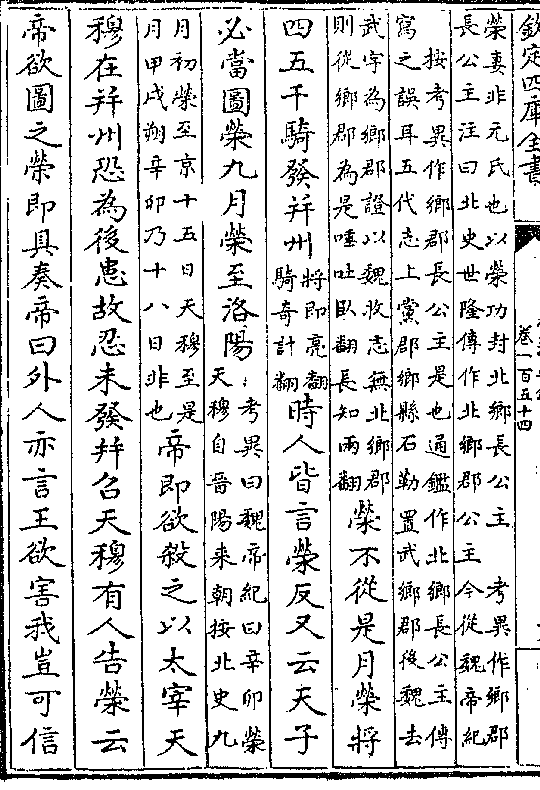 欽定四庫全書
卷一百五十四
榮妻非元氏也以榮功封北鄉長公主 考異作鄉郡
長公主注曰北史世隆傳作北鄉郡公主今從魏帝紀
按考異作鄉郡長公主是也通鑑作北鄉長公主傳
寫之誤耳五代志上黨郡鄉縣石勒置武鄉郡後魏去
武字為鄉郡證以魏收志無北鄉郡
則從鄉郡為是唾吐臥翻長知兩翻
榮不從是月榮將
四五千騎發并州
將即亮翻
騎奇計翻
時人皆言榮反又云天子
必當圖榮九月榮至洛陽
考異曰魏帝紀曰辛卯榮
天穆自晉陽来朝按北史九
月初榮至京十五日天穆至是
月甲戌朔辛卯乃十八日非也
帝即欲殺之以太宰天
穆在并州恐為後患故忍未發并召天穆有人告榮云
帝欲圖之榮即具奏帝曰外人亦言王欲害我豈可信